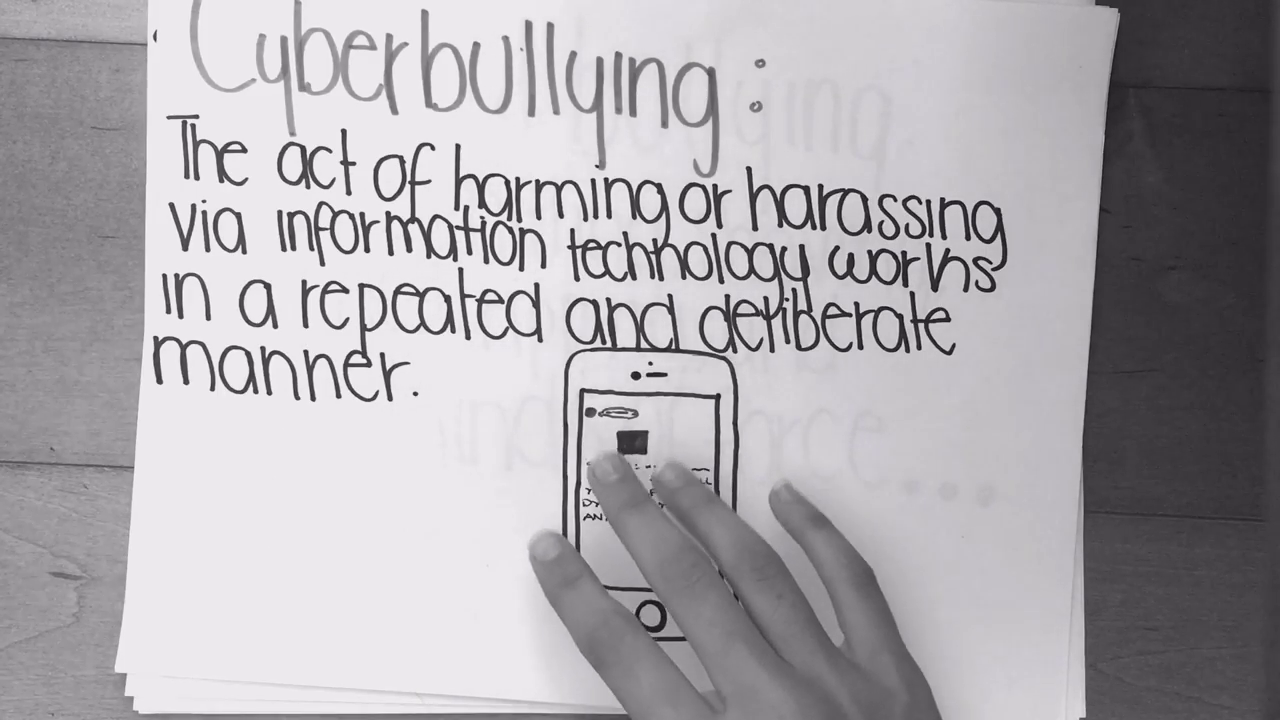 Cyberbullying:
The act of harming or harassing
via information technology works
in a repeated and deliberate
manner.